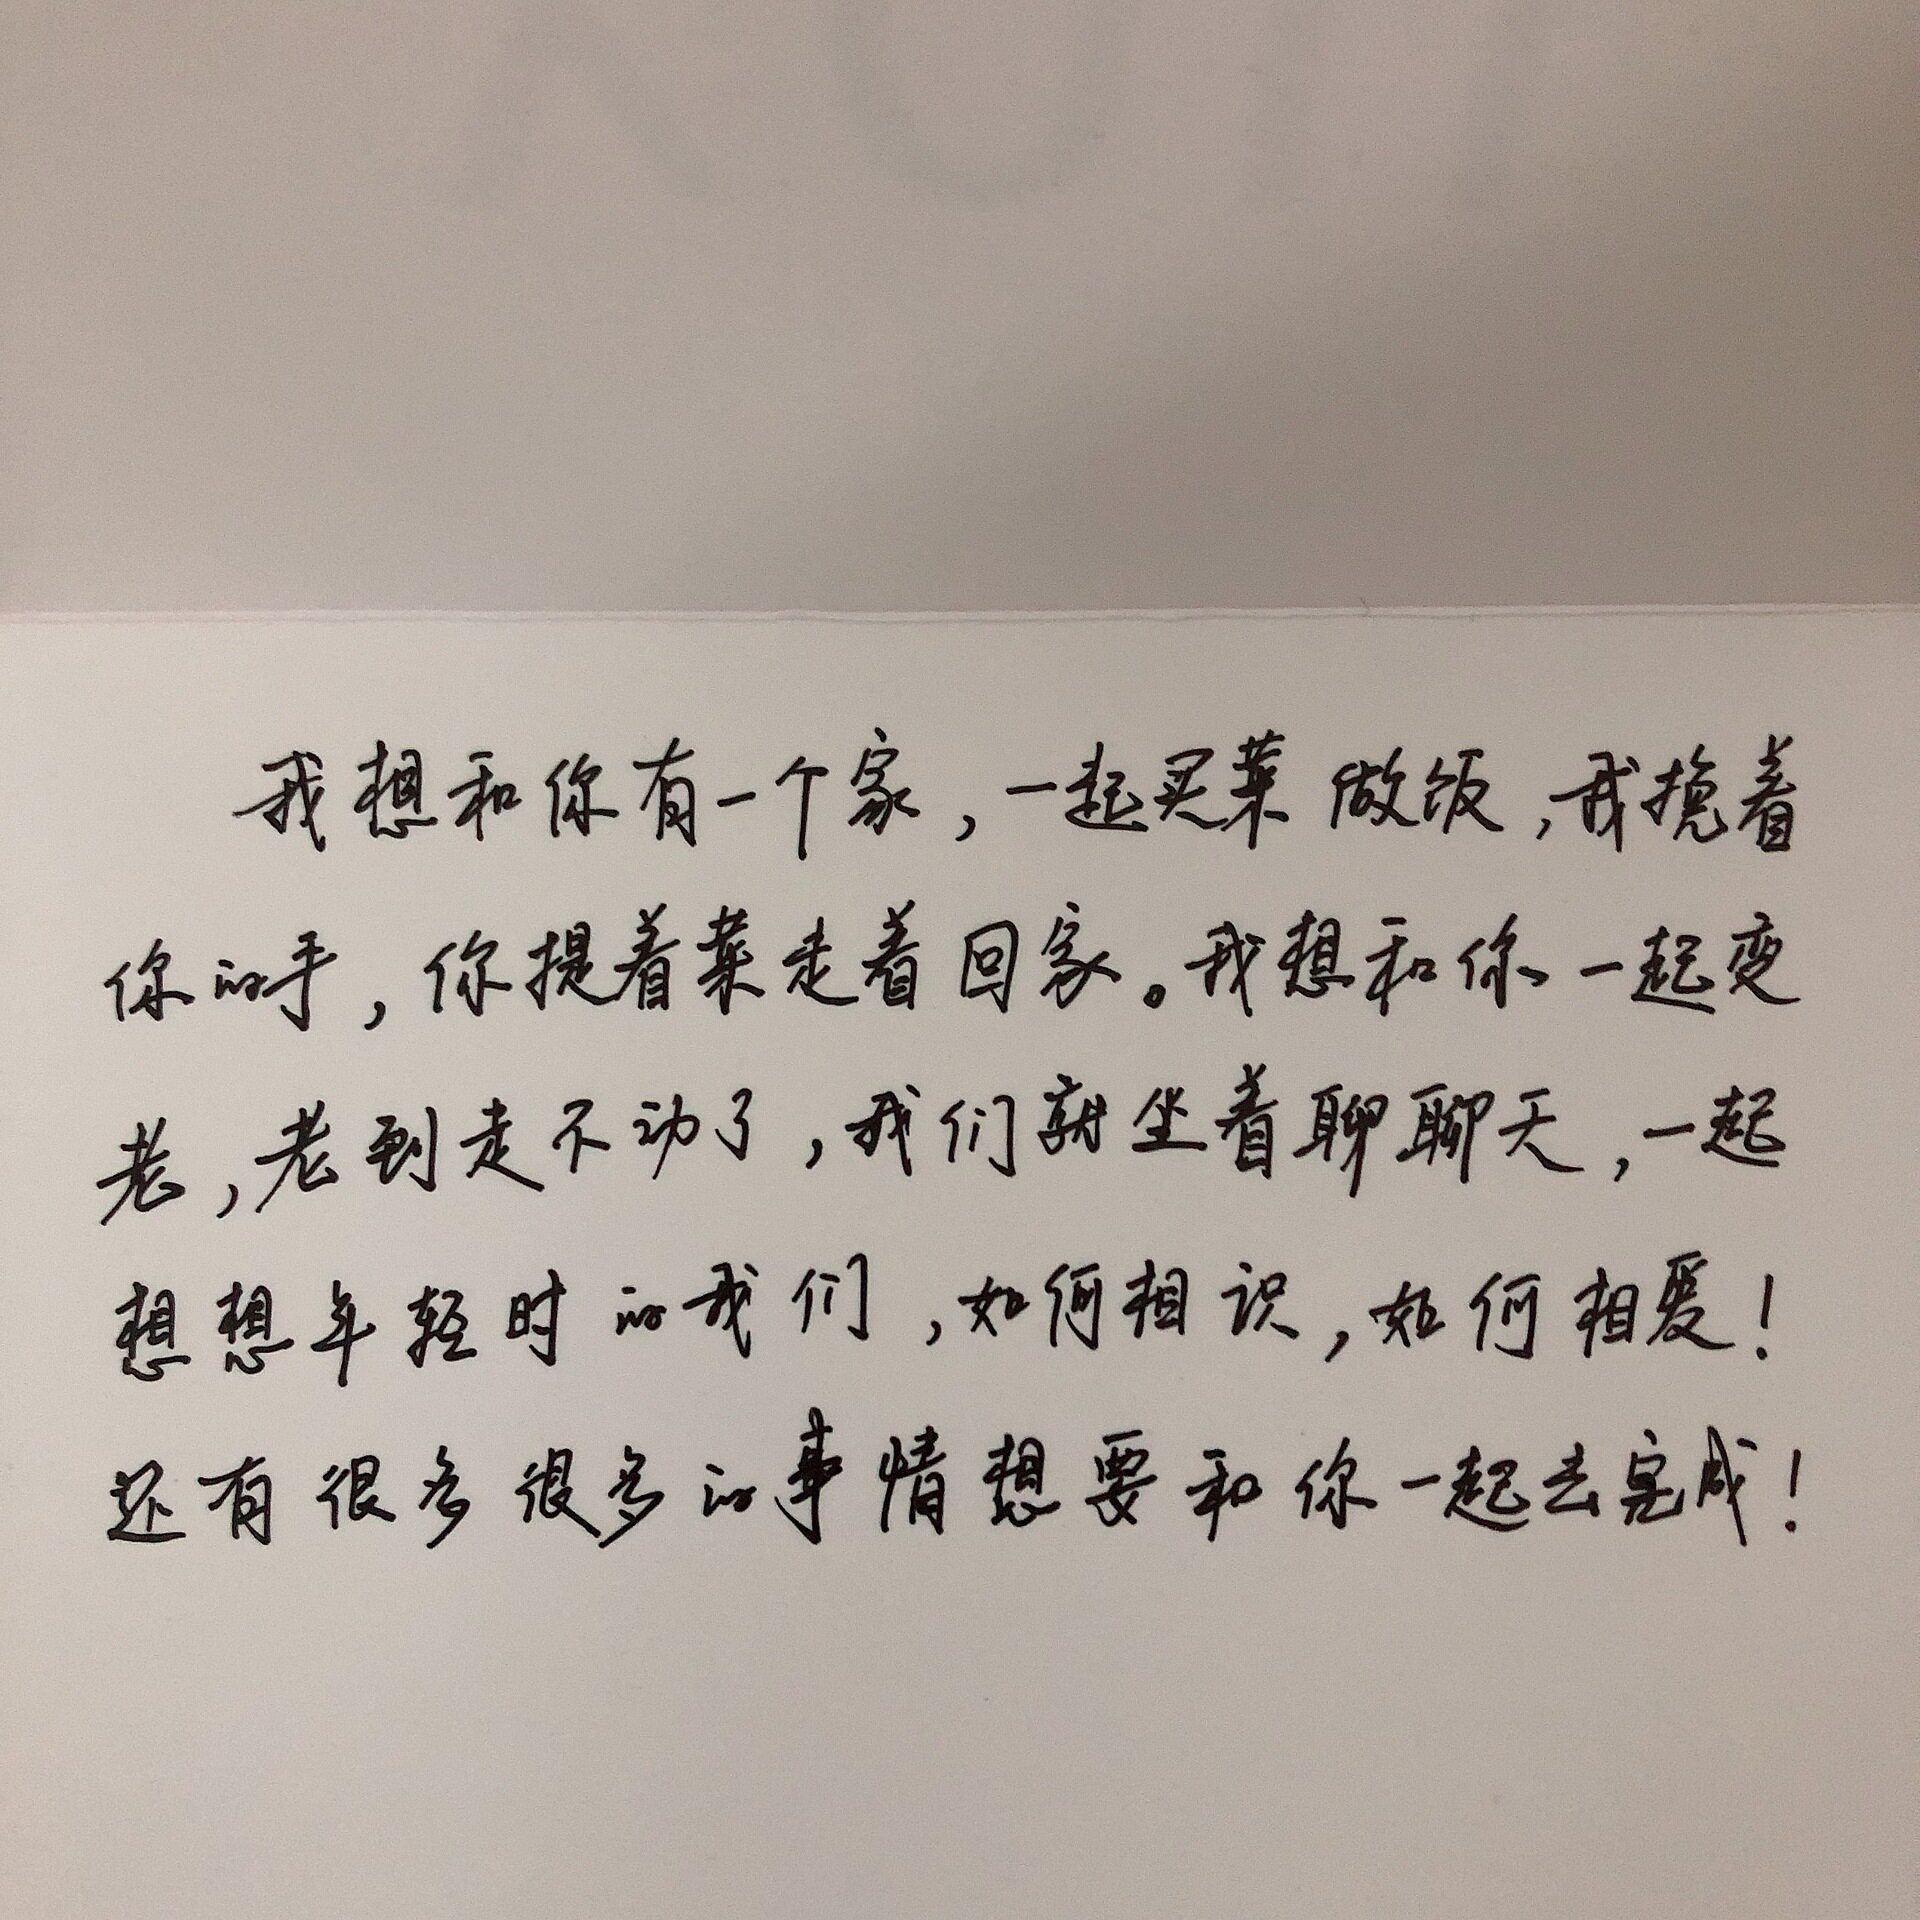 我想和你有一个家，一起买菜做饭，我挽着
你的手，你提着菜走着回家。我想和你一起变
老，老到走不动了，我们就坐着聊聊天，一起
想想年轻时的我们，如何相识，如何相爱！
还有很多很多的事情想要和你一起去完成！